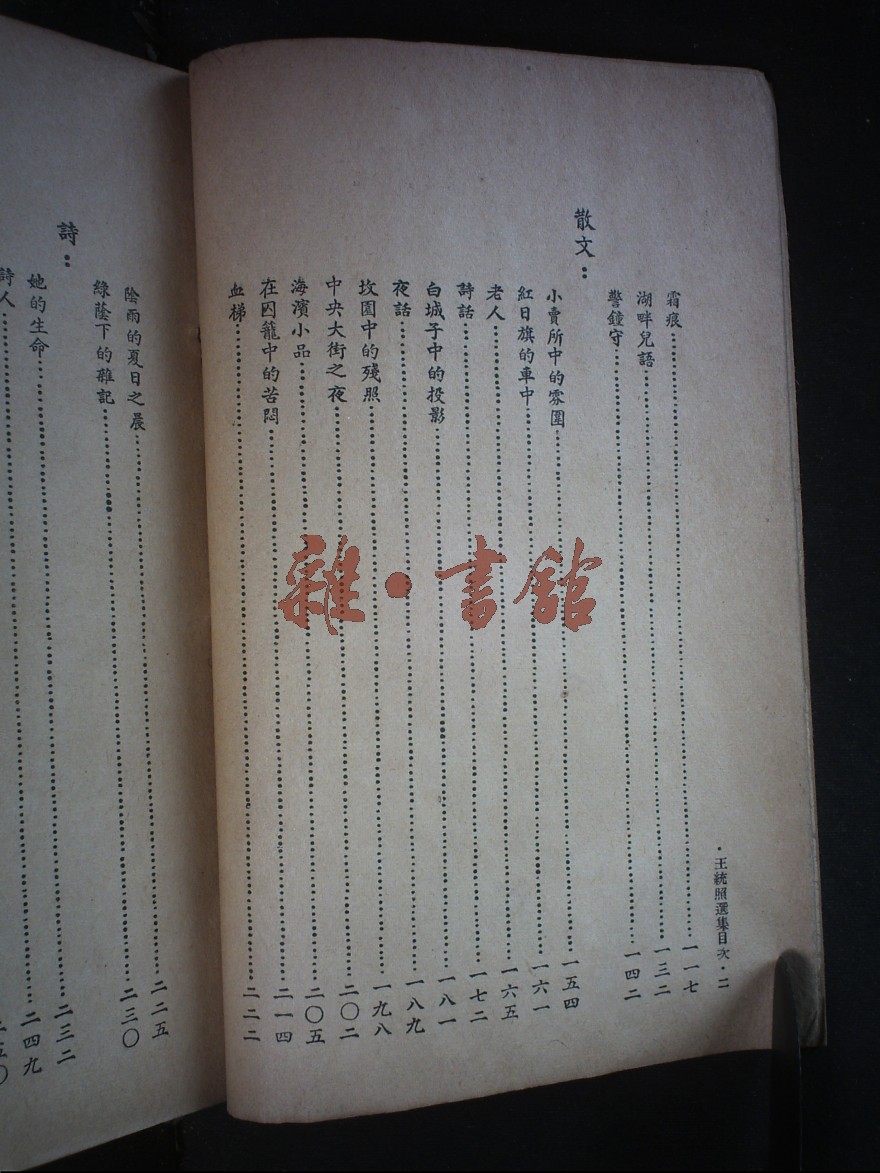 ・王統照選集目次・二
霜痕……一一七
湖畔兒語……一三二
警鐘守……一四二
散文：
小賣所中的雰圍……一五四
紅日旗的車中……一六一
老人……一六五
詩話……一七二
白城子中的投影……一八一
夜話……一八九
坟園中的殘照……一九八
中央大街之夜……二〇二
海濱小品……二〇五
在囚籠中的苦悶……二一四
血梯……二二二
陰雨的夏日之晨……二二五
綠蔭下的雜記……二三〇
詩：
她的生命……二三二
詩人……二四九
雜・書館